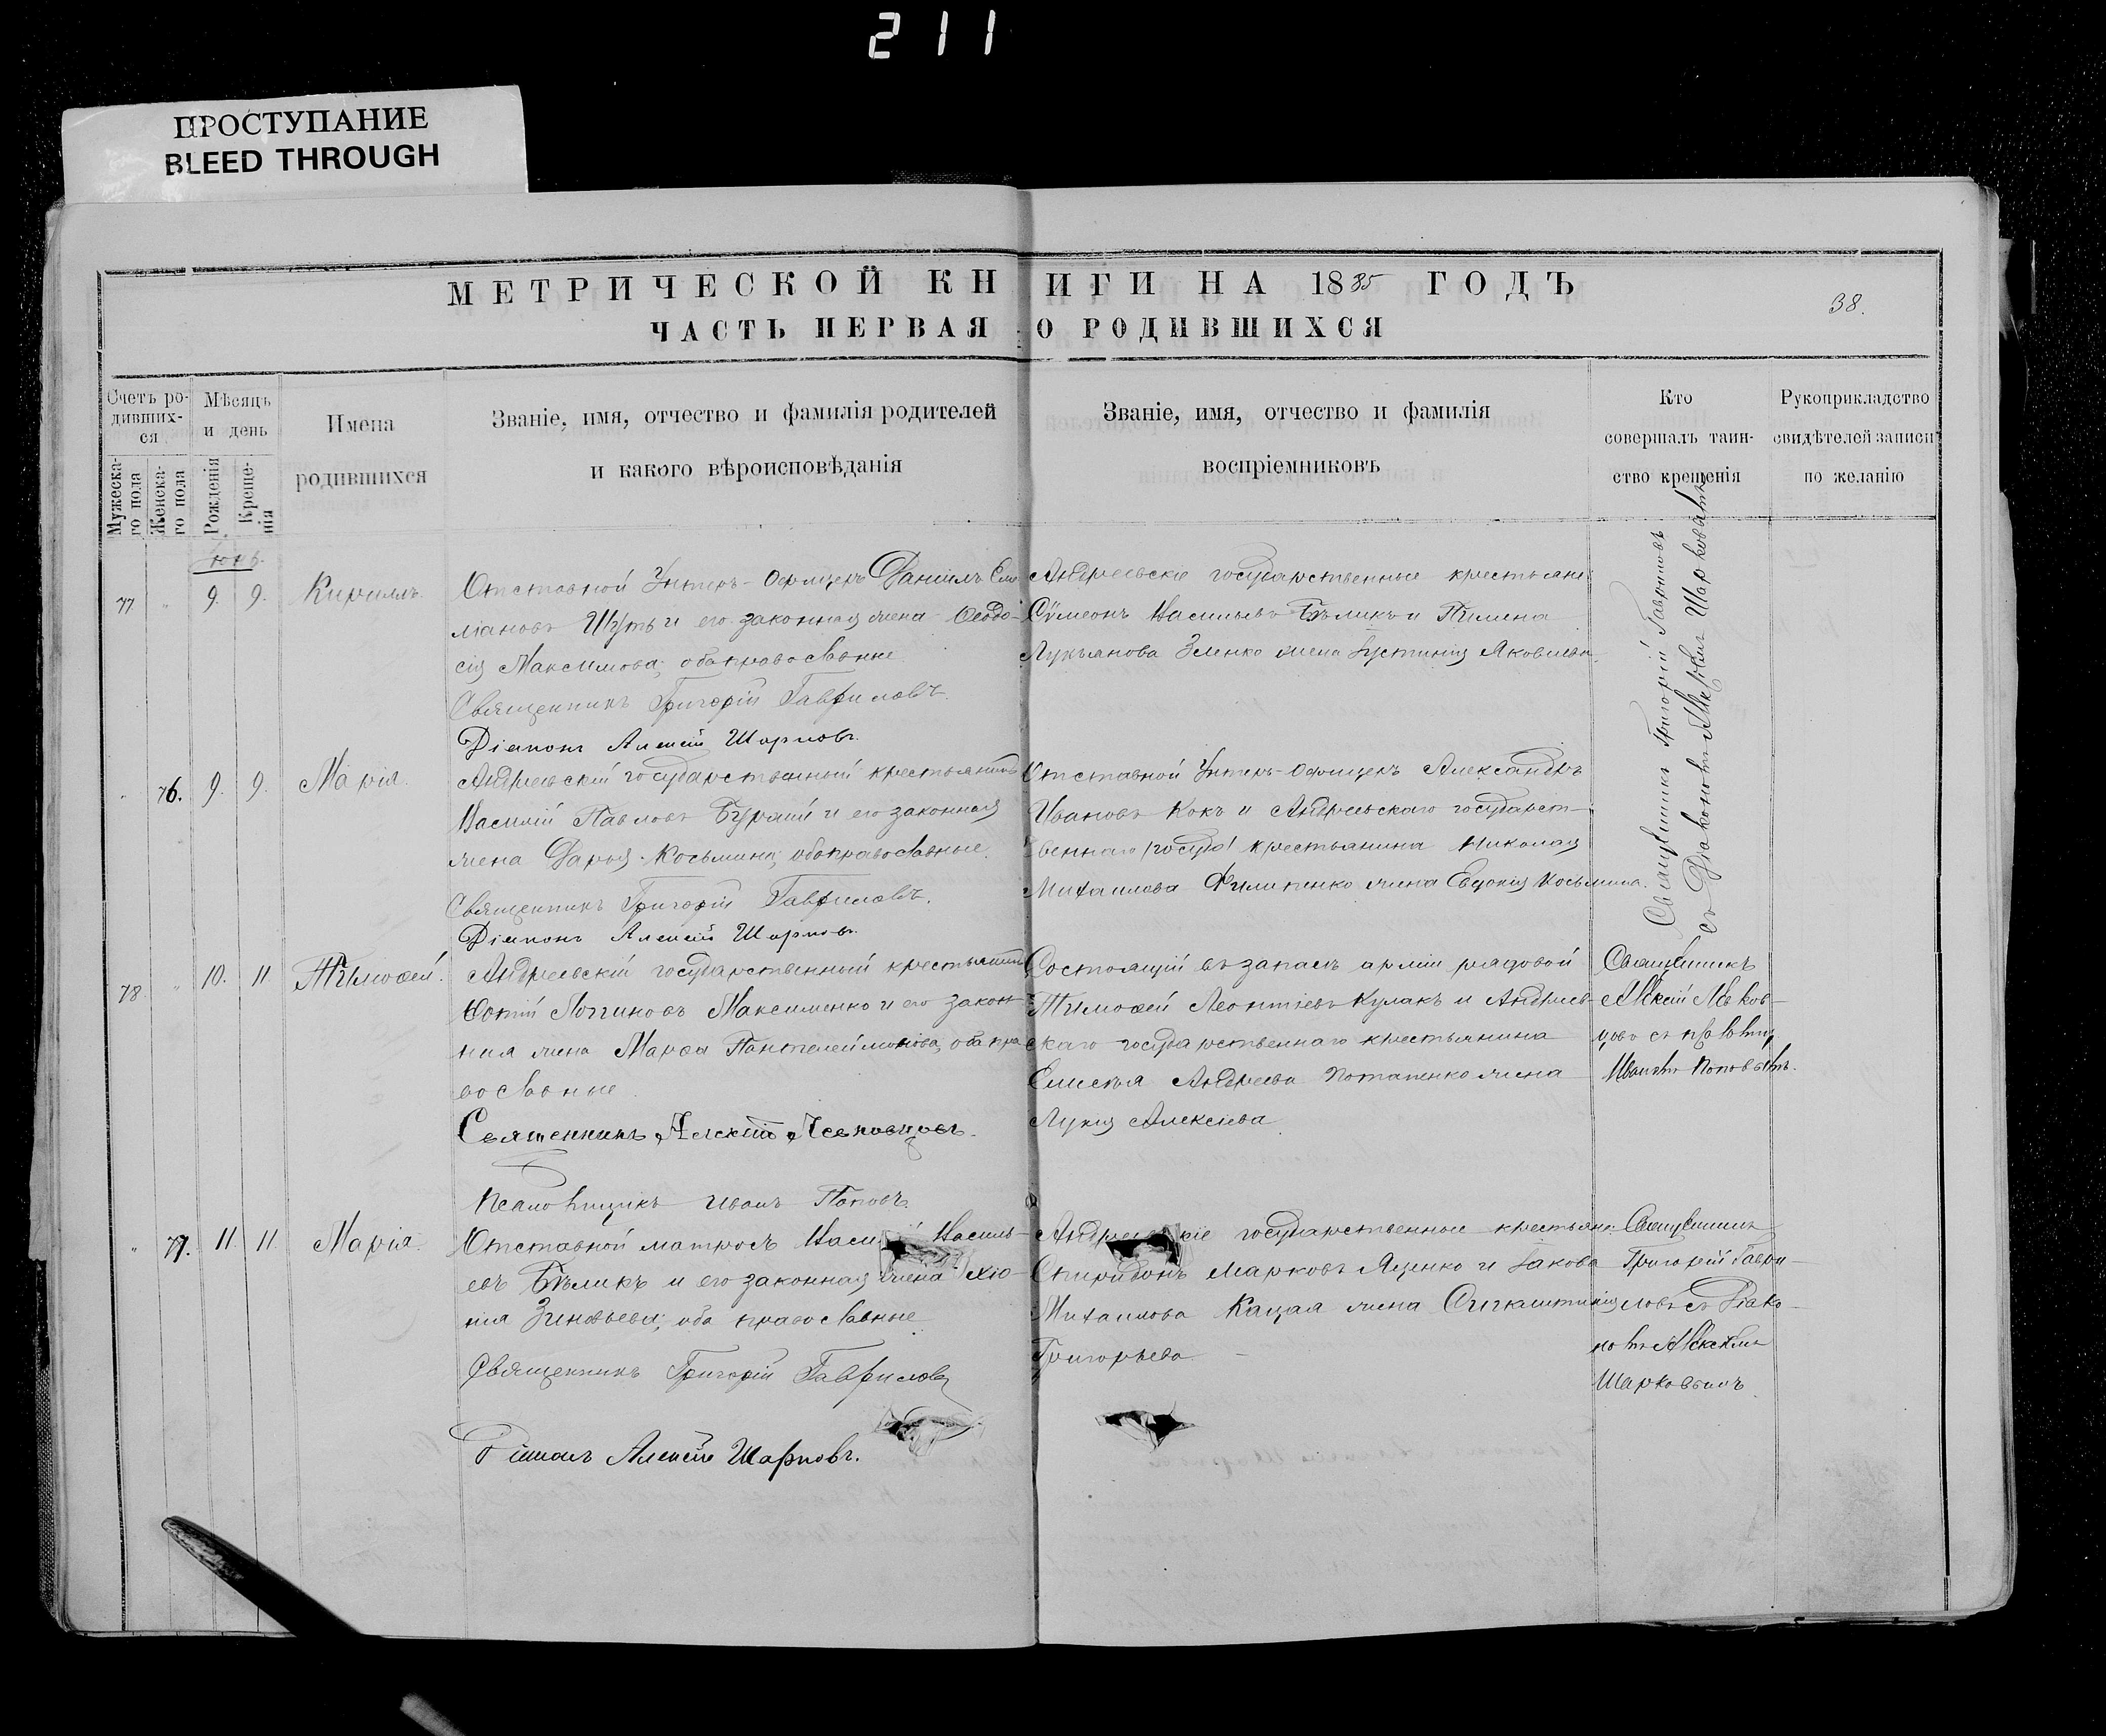 211
ПРОСТУПАНИЕ
BLEED THROUGH
МЕТРИЧЕСКОЙ КНИГИ НА 1835 ГОДЪ
38.
ЧАСТЬ ПЕРВАЯ О РОДИВШИХСЯ
Счетъ родивших-
ся
Мужеска-
го пола
Женска-
го пола
Мѣсяцъ
и день
Рожденія
Креще-
нія
Имена
родившихся
Званіе, имя, отчество и фамилія родителей
и какого вѣроисповѣданія
Званіе, имя, отчество и фамилія
воспріемниковъ
Кто
совершалъ таин-
ство крещенія
Рукоприкладство
свидѣтелей записи
по желанію
Іюнь.
77 " 9. 9. Кириллъ.
Отставной Унтеръ-Офицеръ Даніилъ Еми
ліановъ Шуть и его законная жена Ѳеодо-
сія Максимова, оба православные
Священникъ Григорій Гавриловъ.
Діаконъ Алексій Шарковъ.
Андреевскіе государственные крестьяне:
Сѵмеонъ Васильевъ Бѣликъ и Пимена
Лукьянова Зленко жена Іустинія Яковлева.
Священникъ Григорій Гавриловъ
съ Діакономъ Алексіемъ Шарковымъ
" 76. 9. 9. Марія.
Андреевскій государственный крестьянинъ
Василій Павловъ и его законная
жена Дарья Косьмина, оба православные.
Священникъ Григорій Гавриловъ.
Діаконъ Алексій Шарковъ.
Отставной Унтеръ-Офицеръ Александръ
Ивановъ Кокъ и Андреевскаго государст-
веннаго крестьянина Николая
Михаилова Филипенко жена Евдокія Косьмина.
78. " 10. 11. Тимоѳей.
Андреевскій государственный крестьянинъ
Фотій Логгиновъ Максименко и его закон-
ная жена Марѳа Пантелеймонова, оба пра
вославные
Священникъ Алексій Левковцовъ.
Псаломщикъ Иванъ Поповъ.
Состоящій въ запасѣ арміи рядовой
Тимоѳей Леонтіевъ Кулакъ и Андреев-
скаго государственнаго крестьянина
Елисѣя Андреева Потапенко жена
Лукія Алексіева
Священникъ
Алексій Левков-
цовъ съ псаломщ
Иваномъ Поповымъ.
" 77. 11. 11 Марія.
Отставной матросъ Василій Василь-
евъ Бѣликъ и его законная жена
Зиновьева, оба православные
Священникъ Григорій Гавриловъ
Діаконъ Алексій Шарковъ.
Андреевскіе государственные крестьяне:
Спиридонъ Марковъ Яценко и Іакова
Михаилова Кацая жена
Григорьева
Священникъ
Григорій Гаври-
ловъ съ Діако-
номъ Алексіемъ
Шарковымъ.